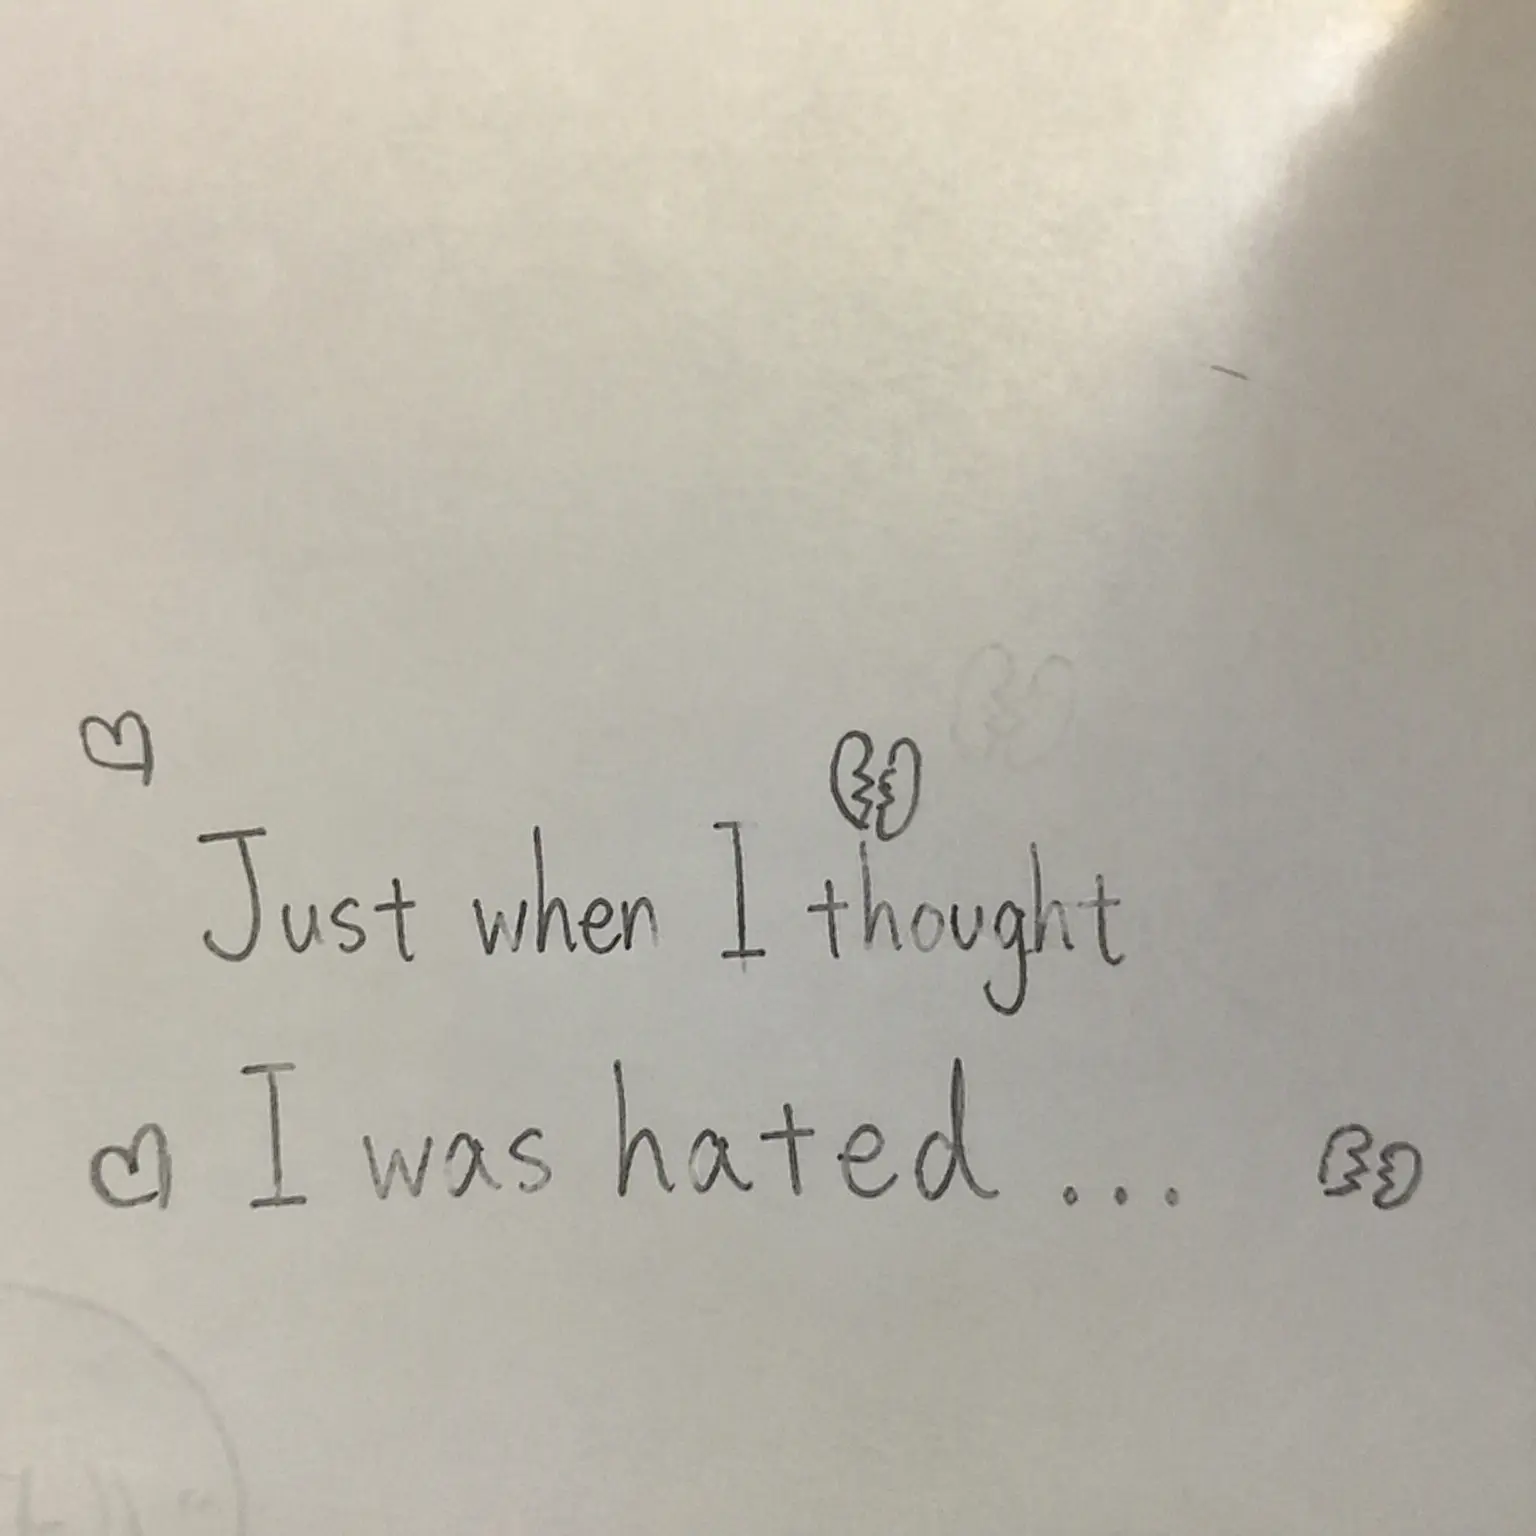 Just when I thought
I was hated...